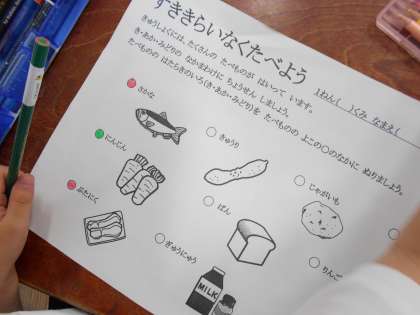 すききらいなくたべよう
1ねん( )くみ なまえ(
きゅうしょくには、たくさんの たべものが はいって います。
き・あか・みどりの なかまわけに ちょうせん しましょう。
たべものの はたらきのいろ(き・あか・みどり)を たべものの よこの○のなかに ぬりましょう。
さかな
きゅうり
にんじん
じゃがいも
ぱん
ぶたにく
ぎゅうにゅう
りんご
MILK